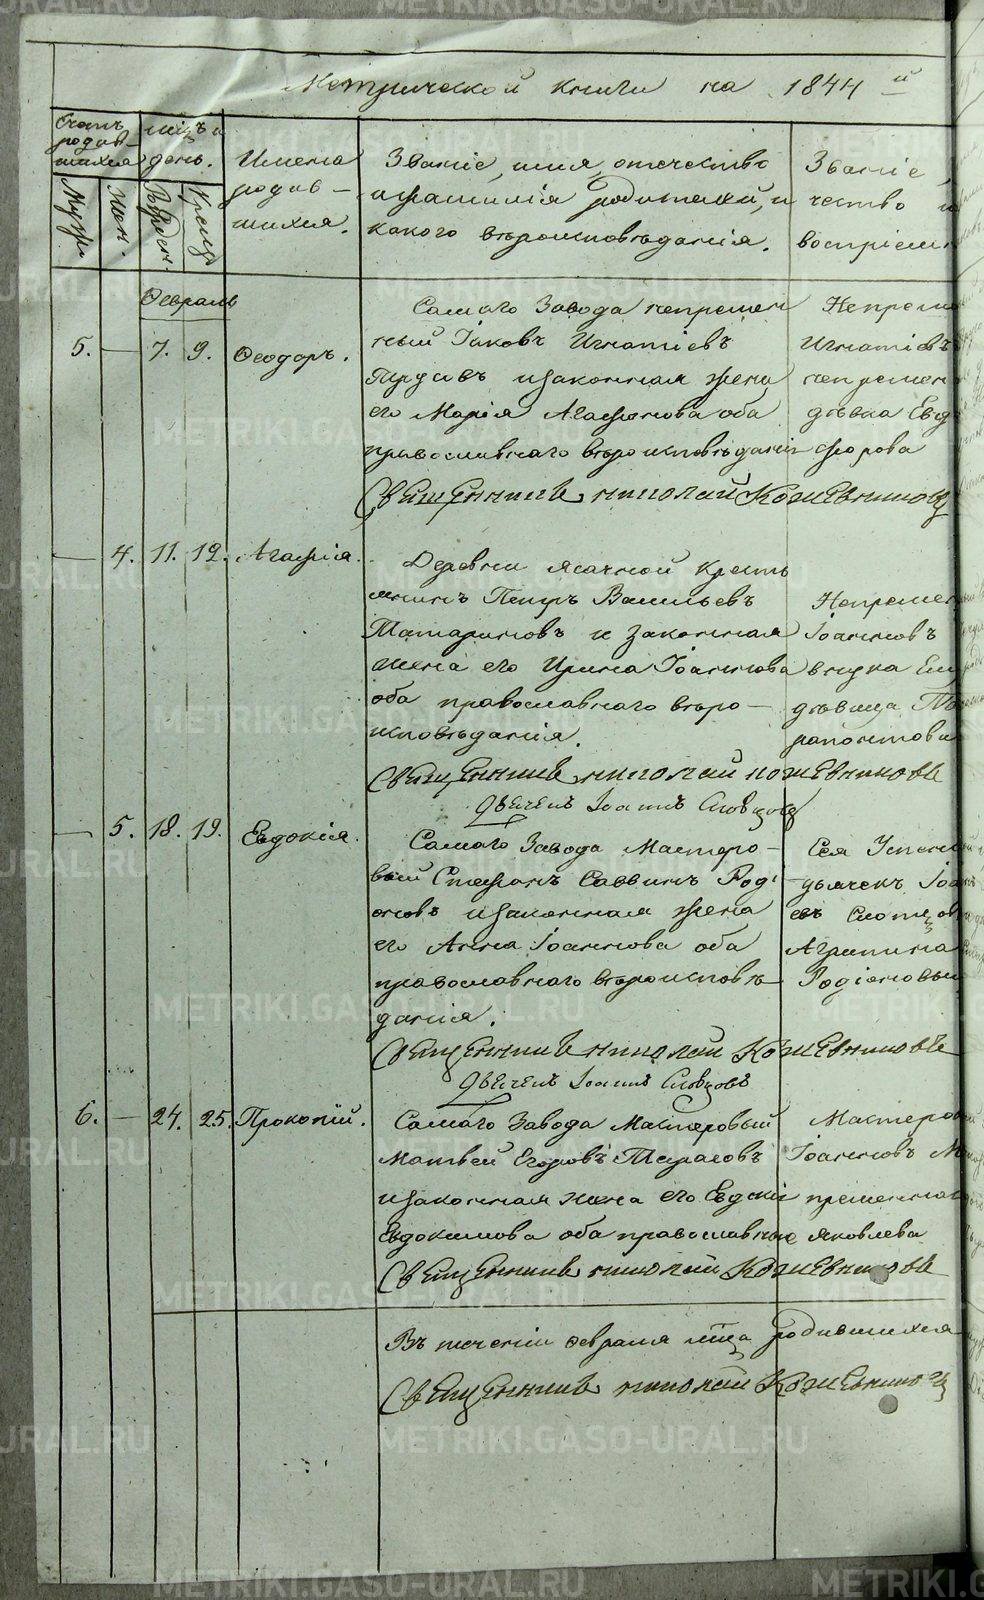 Метрической книги на 1844 й
Счетъ родив-шихся
Муж.
Жен.
Мцъ и день.
Рожден.
Крещ.
Имена
родив-
шихся.
Званіе, имя, отечество
и фамилія родителей, и
какого вѣроисповѣданія.
Званіе,
чество и
воспріем
Февраль
5. — 7. 9. Феодоръ.
Самаго Завода непремен
ный Іаковъ Игнатіевъ
и законная жена
его Марія Агафонова оба
православнаго вѣроисповѣданія
Священникъ Николай Кожевниковъ
Непреме
Игнатіевъ
непремен
дѣвка Евд
форова
— 4. 11. 12. Агафія.
Деревни Ясачной кресть
янинъ Петръ Васильевъ
Татариновъ и законная
жена его Ирина Іоаннова
оба православнаго вѣро—
исповѣданія.
Священникъ Николай Кожевниковъ
Дьячекъ Іоаннъ Словцовъ
Непремен
Іоанновъ
внука Ели
дѣвица
— 5. 18. 19. Евдокія.
Самаго Завода Мастеро—
вый Стефанъ Саввинъ Роді
оновъ и законная жена
его Анна Іоаннова оба
православнаго вѣроисповѣ
данія.
Священникъ Николай Кожевниковъ
Дьячекъ Іоаннъ Словцовъ
Сея Успен
дьячекъ Іоа
Агрипина
Родіоновы
6. — 24. 25. Прокопій.
Самаго Завода Мастеровый
Матвей Егоровъ Тарасовъ
и законная жена его Евдокія
Евдокимова оба православные
Священникъ Николай Кожевниковъ
Мастеров
Іоанновъ М
пременнаг
Яковлева
Въ теченіи февраля мца родившихся
Священникъ Николай Кожевниковъ
METRIKI.GASO-URAL.RU